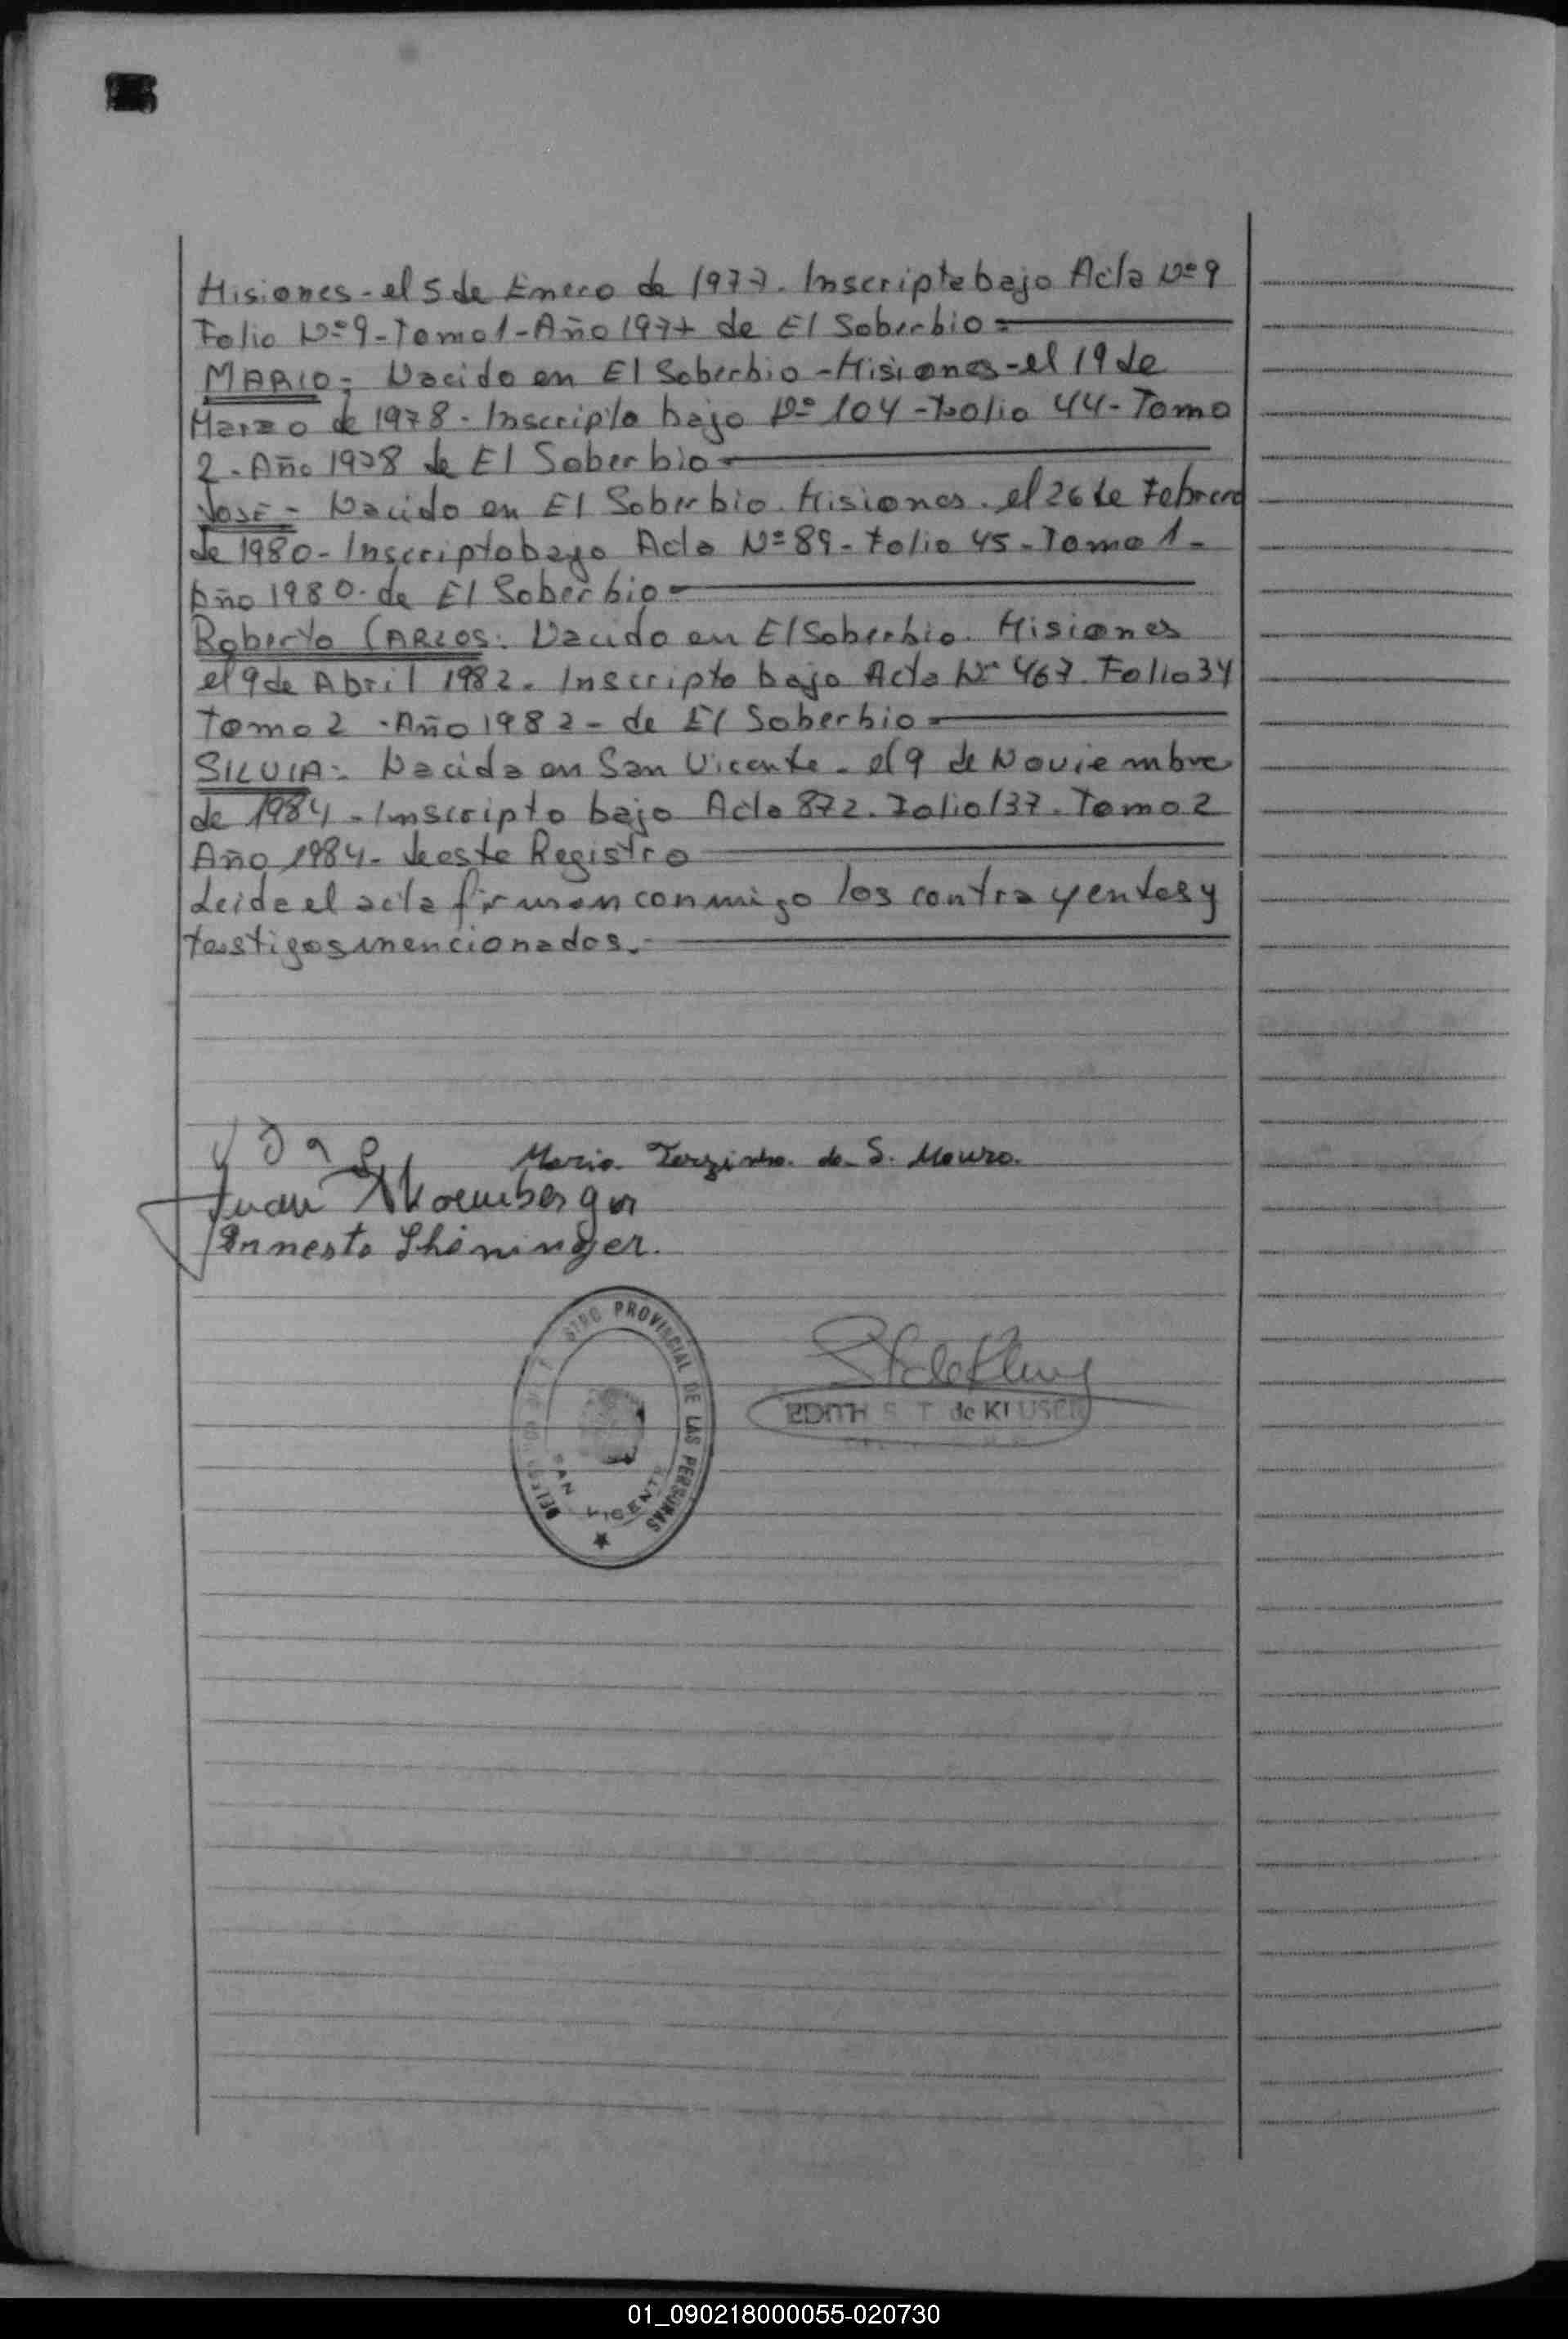 Misiones - el 5 de Enero de 1977. Inscripta bajo Acta Nº 9
Folio Nº 9 - Tomo 1 - Año 1977 de El Soberbio =
MARIO = Nacido en El Soberbio - Misiones - el 19 de
Marzo de 1978 - Inscripto bajo Nº 104 - Folio 44 - Tomo
2 - Año 1978 de El Soberbio -
JOSÉ - Nacido en El Soberbio. Misiones. el 26 de Febrero
de 1980 - Inscripto bajo Acta Nº 89 - Folio 45 - Tomo 1 -
Año 1980. de El Soberbio -
Roberto CARLOS. Nacido en El Soberbio. Misiones
el 9 de Abril 1982. Inscripto bajo Acta Nº 467. Folio 34
Tomo 2 - Año 1982 - de El Soberbio =
SILVIA = Nacida en San Vicente - el 9 de Noviembre
de 1984 - Inscripto bajo Acta 872. Folio 137. Tomo 2
Año 1984 - de este Registro
Leida el acta firman conmigo los contrayentes y
testigos mencionados. -
Maria Terezinha da S. Mouro.
Juan
Ernesto
PROVINCIAL DE LAS PERSONAS
SAN VICENTE
EDITH S. T. de KLUSER
01_090218000055-020730